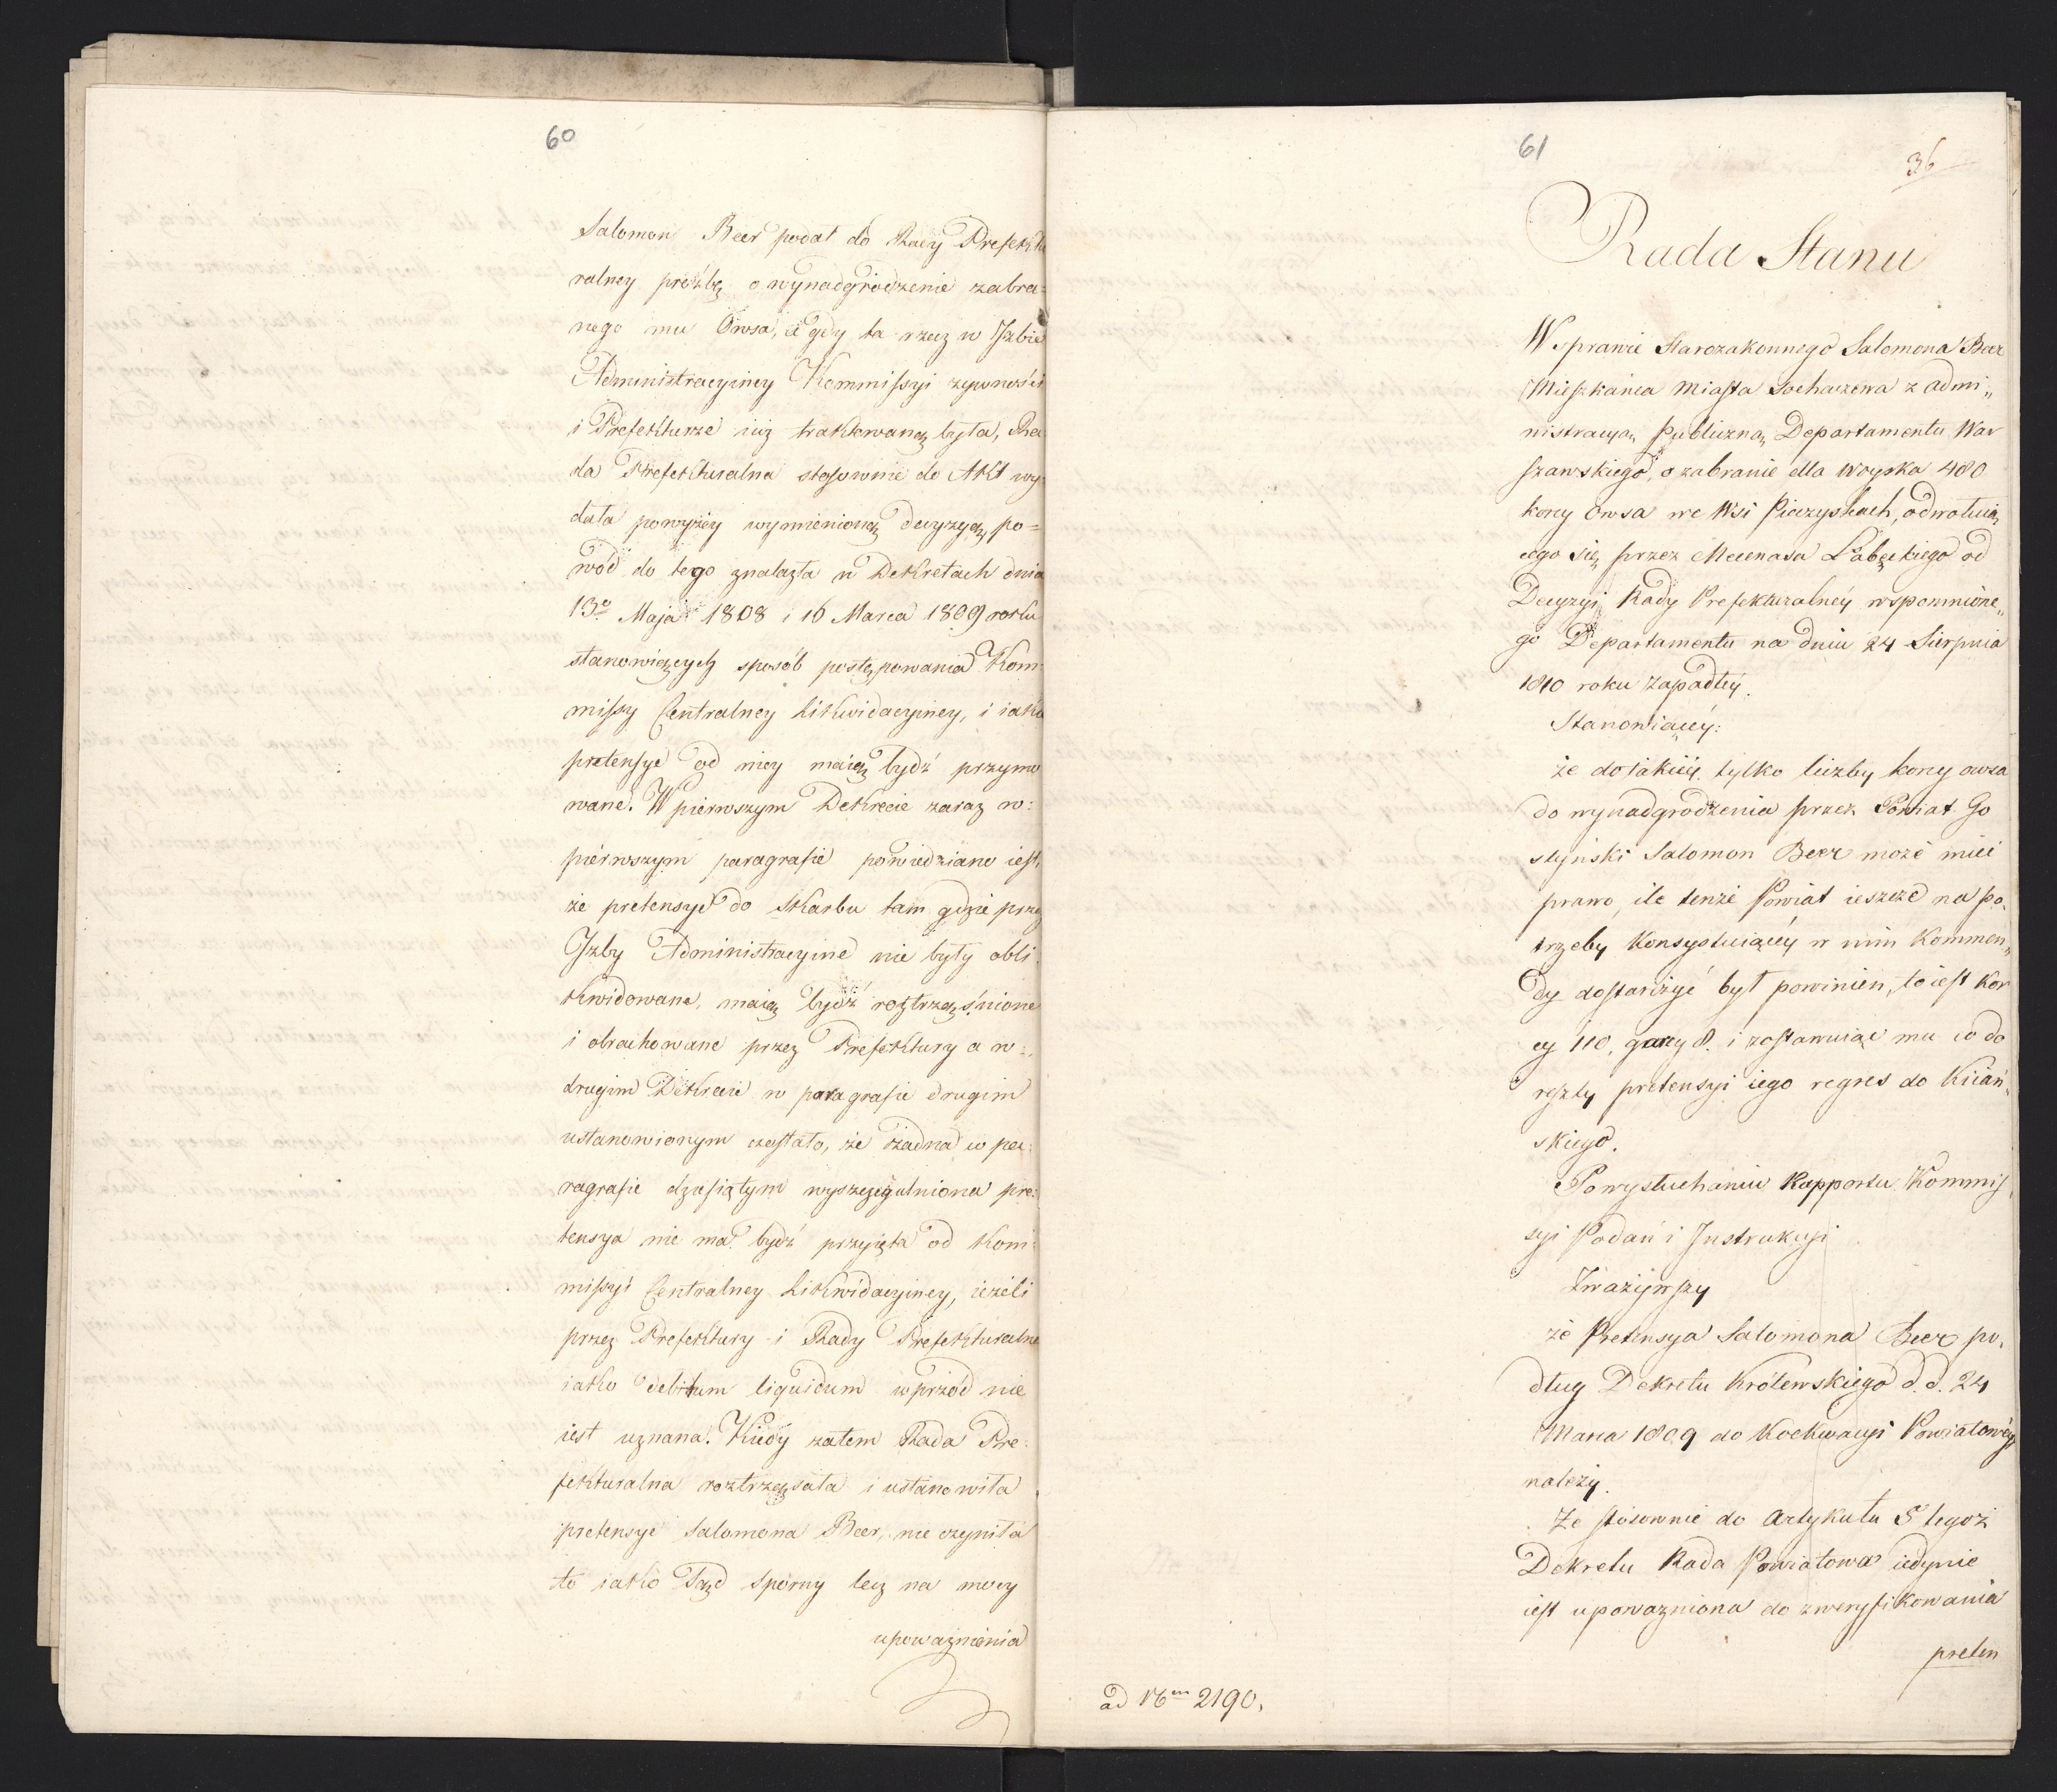 60
Salomon Beer podał do Rady Prefektu
ralney proźbę o wynadgrodzenie zabra=
nego mu Owsa, a gdy ta rzecz w Jzbie
Administracyiney Kommissyi żywności
i Prefekturze iuż traktowaną była, Ra
da Prefekturalna stosownie do Akt wy
dała powyżey wymienioną decyzyą, po=
wód do tego znalazła w Dekretach dnia
13º Maja 1808 i 16 Marca 1809 roku
stanowiących sposób postępowania Kom=
missyi Centralney Likwidacyiney, i iakie
pretensye od niey maią bydź przymo
wane. W pierwszym Dekrecie zaraz w=
pierwszym paragrafie powiedziano iest,
że pretensye do skarbu tam gdzie przez
Jzby Administracyine nie były obli
kwidowane, maią bydź roztrząśnione
i obrachowane przez Prefektury a w=
drugim Dekrecie w paragrafie drugim
ustanowionym zostało, że żadna w pa=
ragrafie dziesiątym wyszczegulniona pre=
tensya nie ma bydź przyięta od Kom=
missyi Centralney Likwidacyiney, ieżeli
przez Prefektury i Rady Prefekturalne
iako debitum liquidum wprzód nie
iest uznana. Kiedy zatem Rada Pre=
fekturalna roztrząsała i ustanowiła
pretensye Salomona Beer, nie czyniła
to iako Sąd sporny lecz na mocy
upoważnienia
61
36
Rada Stanu
W sprawie Starozakonnego Salomona Beer
Mieszkańca Miasta Sochaczewa z admi„
nistracyą Publiczną Departamentu War
szawskiego, o zabranie dla woyska 480
korcy Owsa we Wsi Pieczyskach, odwołuią
cego się przez Mecenasa Łabęckiego od
Decyzyi Rady Prefekturalney wspomnione„
go Departamentu na dniu 24 Sierpnia
1810 roku zapadłey.
Stanowiącey:
że do iakiey tylko liczby korcy owsa
do wynadgrodzenia przez Powiat Go
styński Salomon Beer może mieć
prawo, ile tenże Powiat ieszcze na po„
trzeby Konsystuiącey w nim Kommen„
dy dostarczyć był powinien, to iest Kor
cy 110. garcy 8. i zostawuiąc mu co do
reszty pretensyi iego regres do Kiciań„
skiego.
Po wysłuchaniu Rapportu Kommis
syi Podań i Jnstrukcyi
Zważywszy
że Pretensya Salomona Beer po„
dług Dekretu Królewskiego d. d. 24
Marca 1809 do Koekwacyi Powiatowey
należy.
Że stosownie do Artykułu 5 tegoż
Dekretu Rada Powiatowa iedynie
iest upoważniona do zweryfikowania
preten
ad Nᵉᵐ 2190.